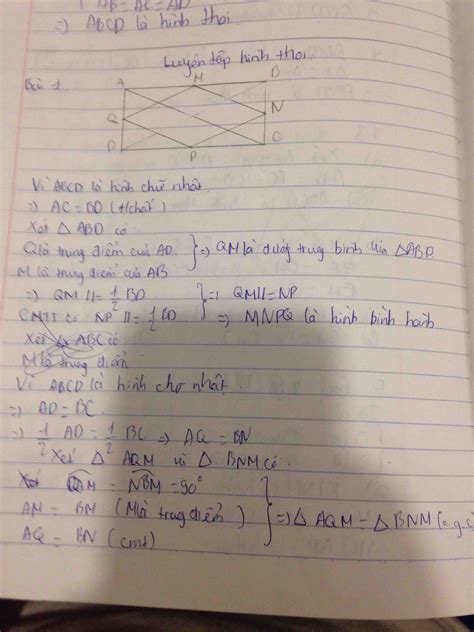 AB = AC = AD
=> ABCD là hình thoi
Luyện tập hình thoi
Bài 1
A M B
Q N
D P C
Vì ABCD là hình chữ nhật
=> AC = BD (t/chất)
Xét △ ABD có
Q là trung điểm của AD } => QM là đường trung bình của △ABD
M là trung điểm của AB
=> QM // = 1/2 BD } => QM // = NP
CMTT có NP // = 1/2 BD => MNPQ là hình bình hành
Xét △ ABC có
M là trung điểm
Vì ABCD là hình chơ nhật
=> AD = BC
=> 1/2 AD = 1/2 BC => AQ = BN
Xét △ AQM và △ BNM có
QAM = NBM = 90°
AM = BM (M là trung điểm) } => △ AQM = △ BNM (c.g.c)
AQ = BN (cmt)